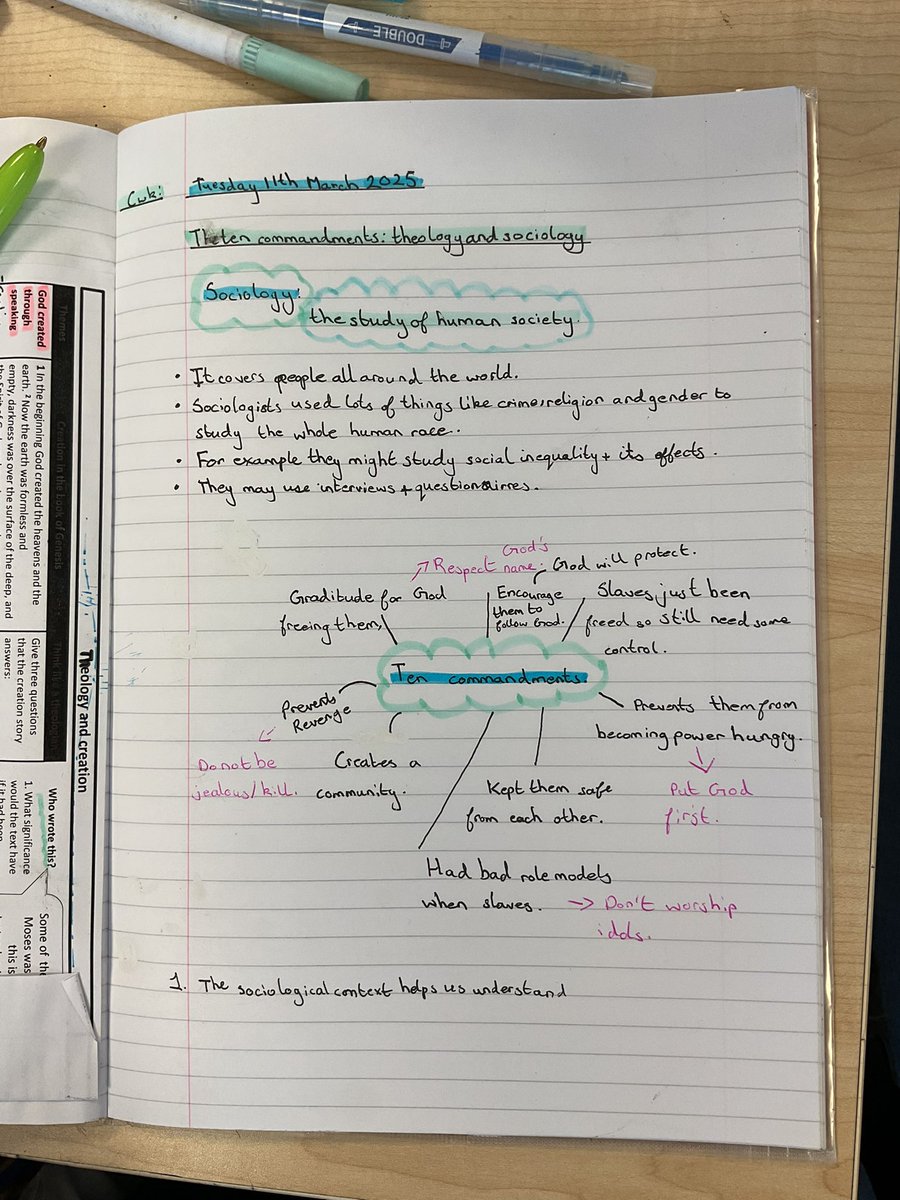 DOUBLE
Cwk: Tuesday 11th March 2025
The ten commandments: theology and sociology
Sociology:
the study of human society.
• It covers people all around the world.
• Sociologists used lots of things like crime, religion and gender to
study the whole human race..
• For example they might study social inequality + its effects.
• They may use interviews + questionairres.
God's
Respect name.
God will protect.
Graditude for God
freeing them,
Encourage
them to
follow God.
Slaves, just been
freed so still need some
control.
Ten commandments.
Prevents
Revenge
Do not be
jealous/kill.
Creates a
community.
Kept them safe
from each other.
Prevents them from
becoming power hungry.
Put God
first.
Had bad role models
when slaves. → Don't worship
idols.
1. The sociological context helps us understand
Theology and creation
Themes
Creation in the book of Genesis
Think like a theologian
God created
through
speaking
1 In the beginning God created the heavens and the
earth. ² Now the earth was formless and
empty, darkness was over the surface of the deep, and
Give three questions
that the creation story
answers:
Who wrote this?
1. What significance
would the text have
if it had been
Some of the
Moses was
this is